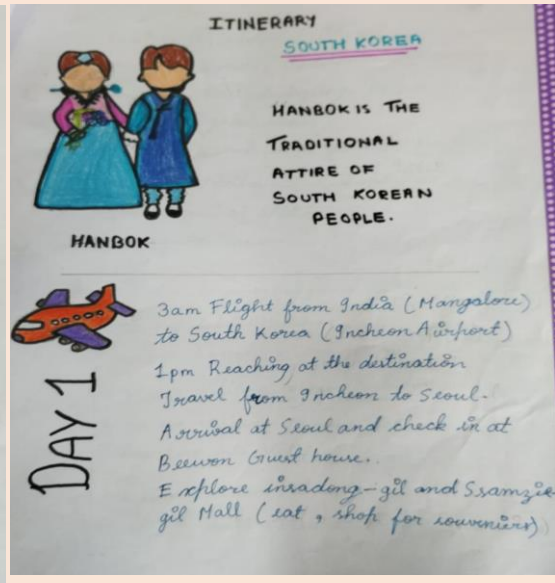 ITINERARY
SOUTH KOREA
HANBOK IS THE
TRADITIONAL
ATTIRE OF
SOUTH KOREAN
PEOPLE.
HANBOK
DAY 1
3am Flight from India (Mangalore)
to South Korea (Incheon Airport)
1pm Reaching at the destination
Travel from Incheon to Seoul.
Arrival at Seoul and check in at
Beewon Guest house.
Explore insadong-gil and Ssamzie-
gil Mall (eat, shop for souveniers)